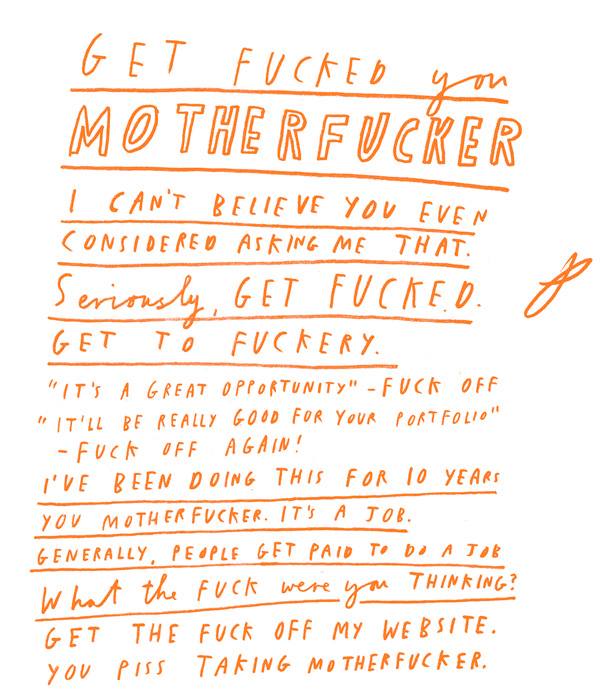 GET FUCKED you
MOTHERFUCKER
I CAN'T BELIEVE YOU EVEN
CONSIDERED ASKING ME THAT.
Seriously, GET FUCKED.
GET TO FUCKERY.
"IT'S A GREAT OPPORTUNITY" - FUCK OFF
"IT'LL BE REALLY GOOD FOR YOUR PORTFOLIO"
- FUCK OFF AGAIN!
I'VE BEEN DOING THIS FOR 10 YEARS
YOU MOTHERFUCKER. IT'S A JOB.
GENERALLY, PEOPLE GET PAID TO DO A JOB
What the FUCK were you THINKING?
GET THE FUCK OFF MY WEBSITE.
YOU PISS TAKING MOTHERFUCKER.